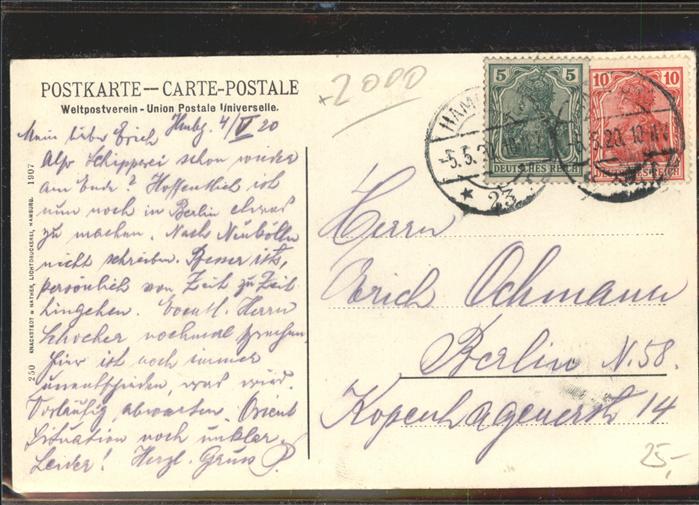 POSTKARTE — CARTE-POSTALE
Weltpostverein - Union Postale Universelle.
+2000
Mein lieber Erich Hmbg. 4/V 20
Also Schipperei schon wieder
am Ende? Hoffentlich ist
nun noch in Berlin etwas
zu machen. Nach
nicht schreiben. Besser ist,
persönlich von Zeit zu Zeit
hingehen. Eventl. Herrn
nochmal sprechen.
Hier ist noch immer
unentschieden, was wird.
Vorläufig abwarten. Orient
Situation noch unklar.
Leider! Herzl. Gruss
250 KNACKSTEDT & NÄTHER, LICHTDRUCKEREI, HAMBURG. 1907
5 5
DEUTSCHES REICH
10 10
DEUTSCHES REICH
HAMB
-5.5.20. 10
* 23
5.20. 10
Herrn
Erich Ochmann
Berlin N. 58.
Kopenhagenerstr 14
25,-